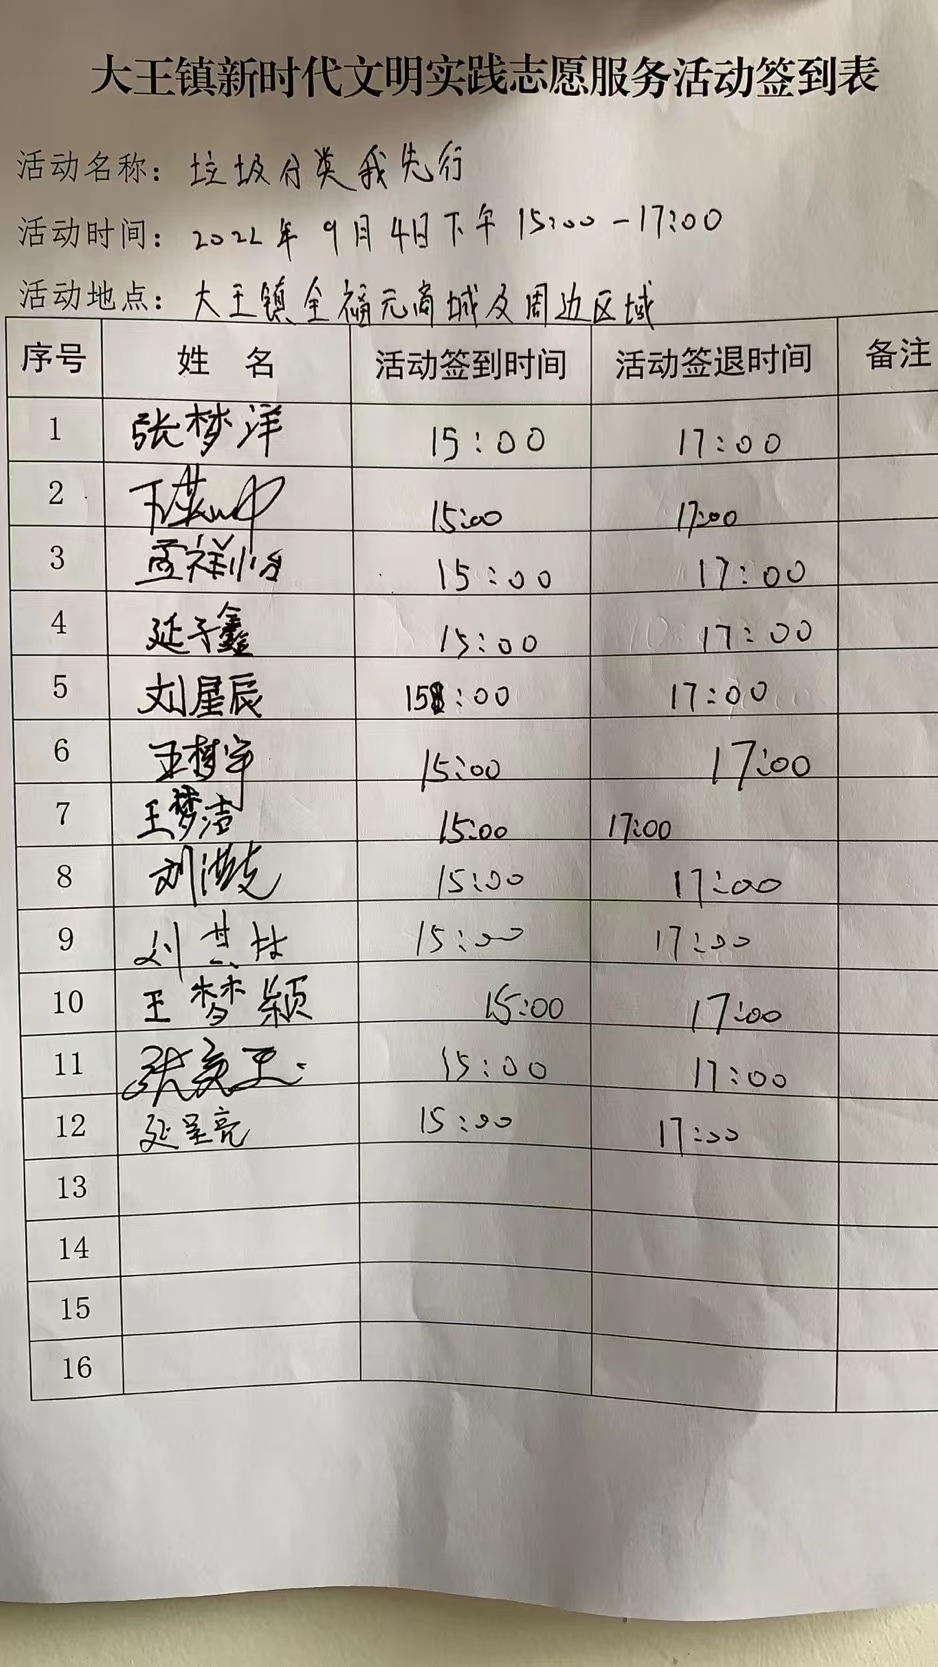 大王镇新时代文明实践志愿服务活动签到表
活动名称：垃圾分类我先行
活动时间：2022年9月4日下午15:00-17:00
活动地点：大王镇全福元商城及周边区域
序号 姓名 活动签到时间 活动签退时间 备注
1 张梦洋 15:00 17:00
2 15:00 17:00
3 孟祥怡 15:00 17:00
4 延子鑫 15:00 17:00
5 刘星辰 15:00 17:00
6 王梦宇 15:00 17:00
7 王梦洁 15:00 17:00
8 刘洪志 15:00 17:00
9 刘其林 15:00 17:00
10 王梦颖 15:00 17:00
11 15:00 17:00
12 延呈亮 15:00 17:00
13
14
15
16